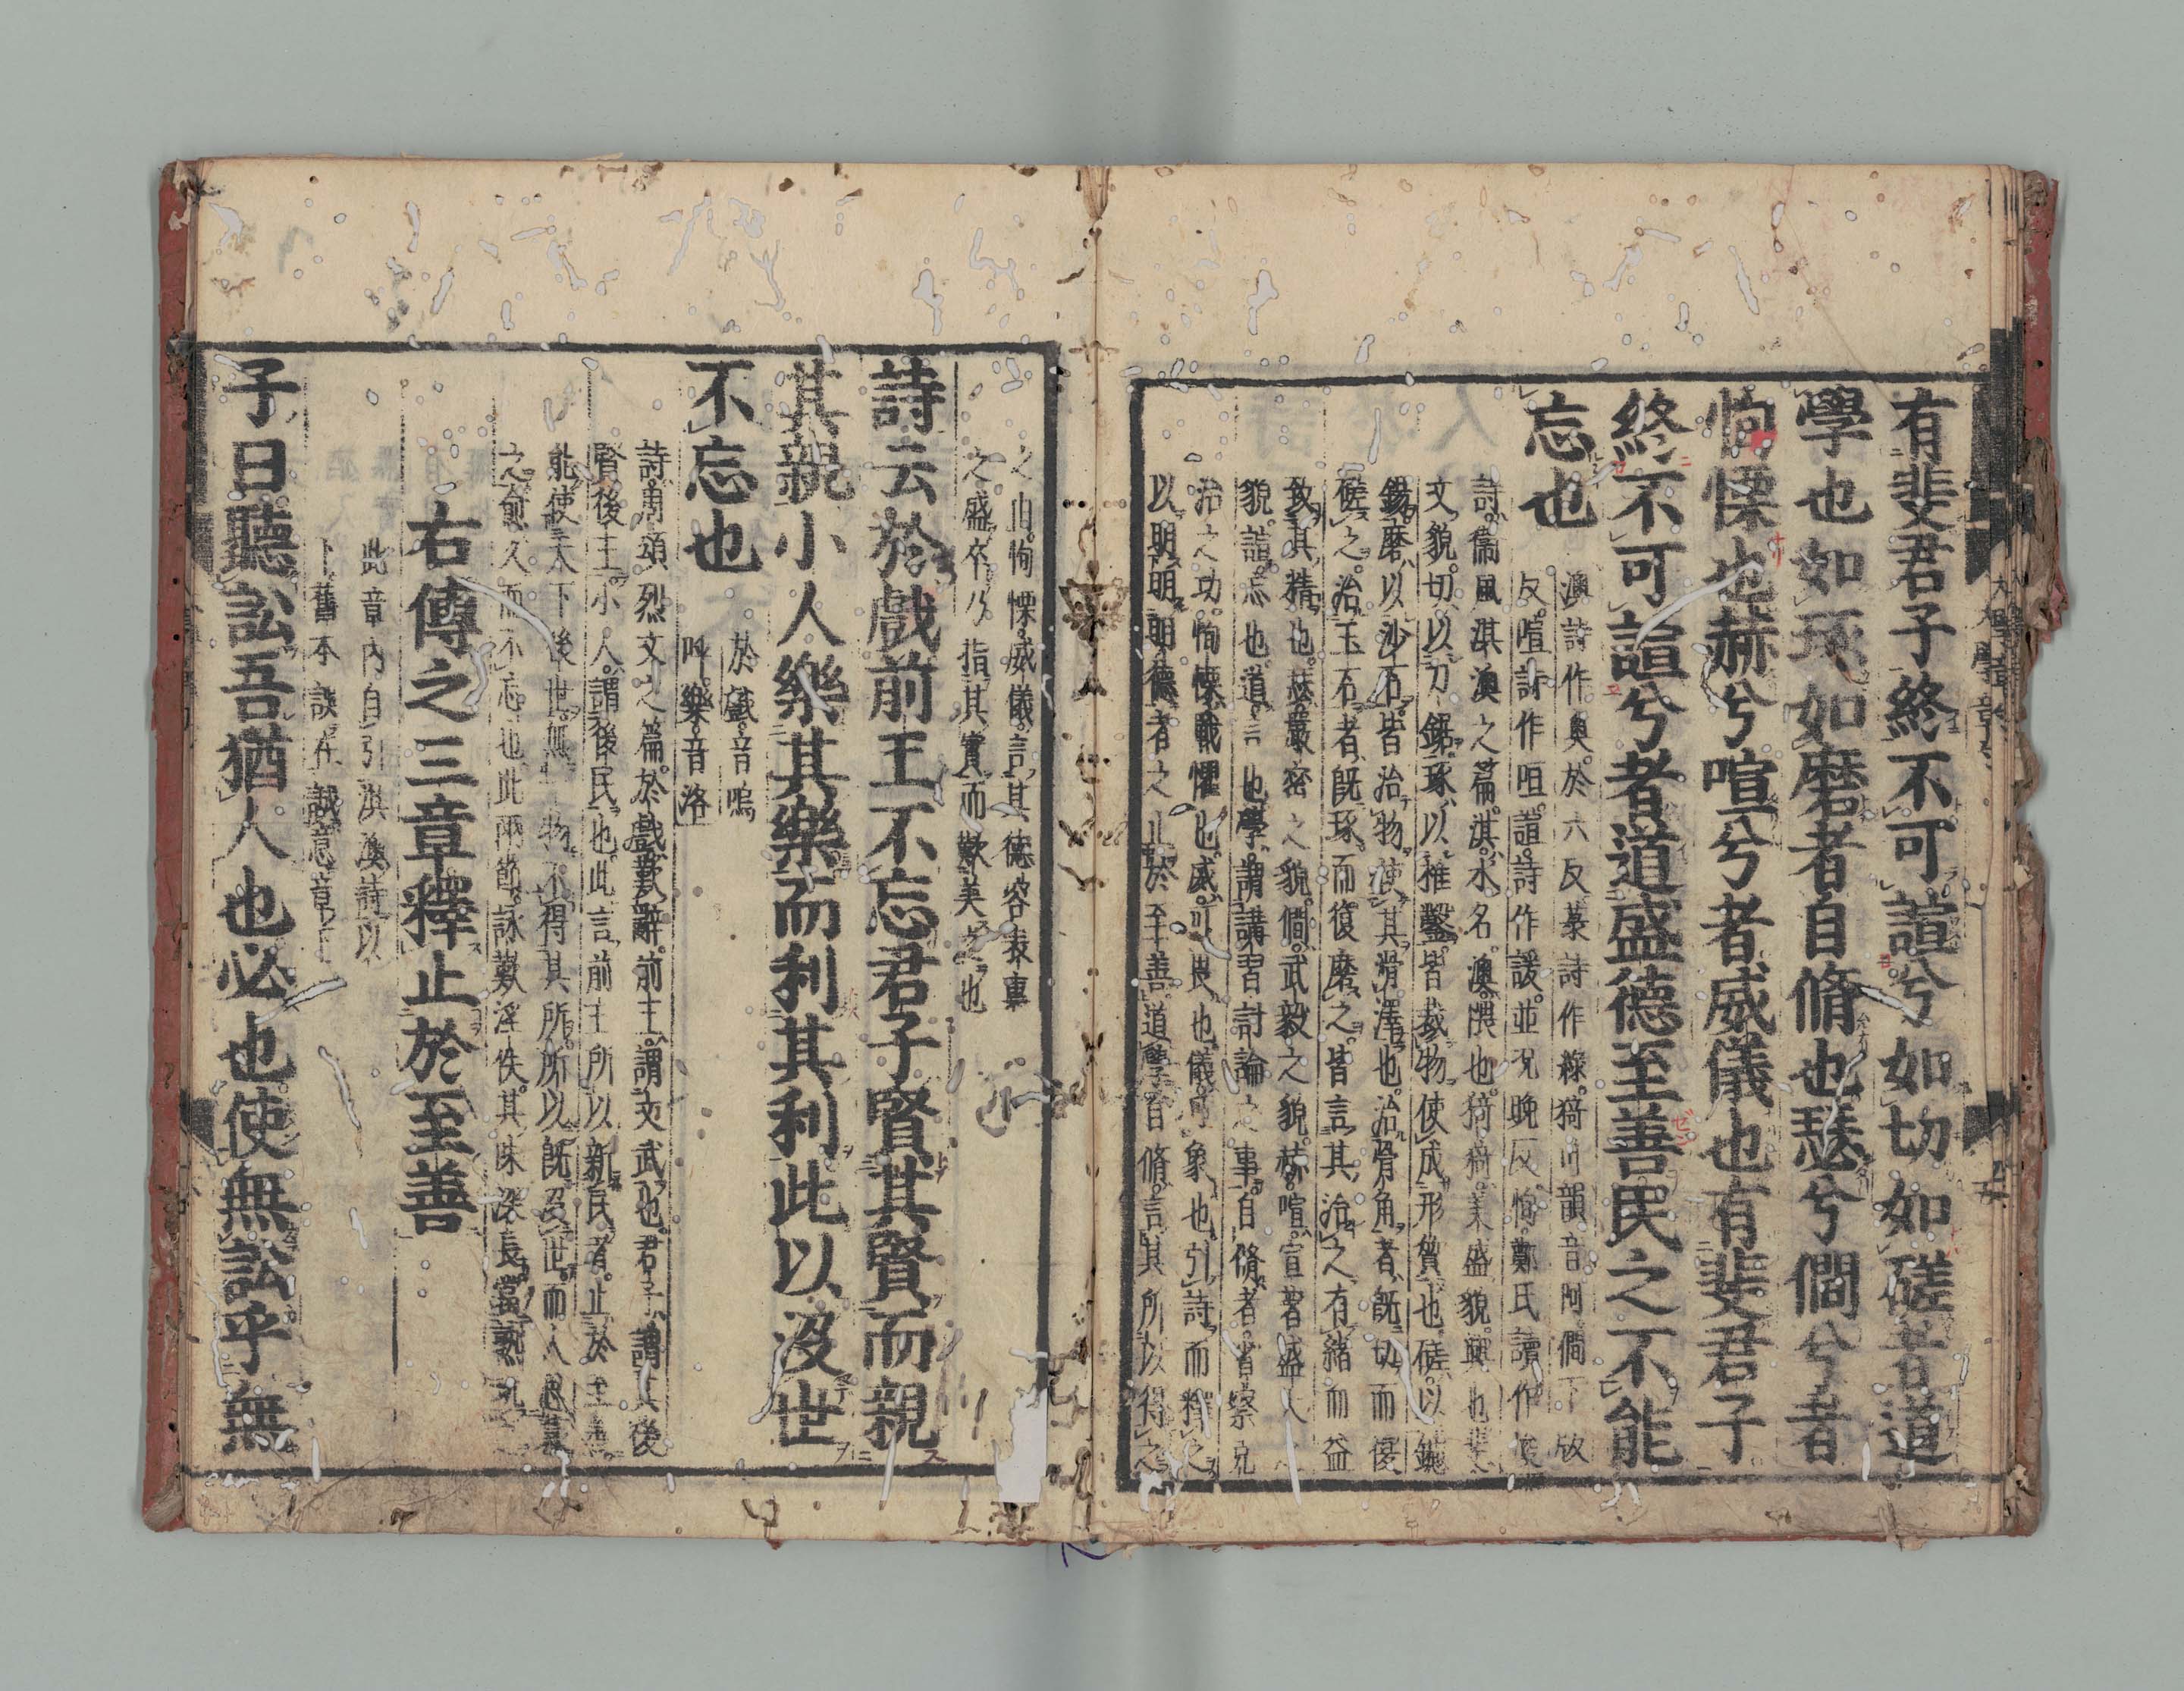 有斐君子終不可諠兮如切如磋者道
學也如琢如磨者自脩也瑟兮僩兮者
恂慄也赫兮喧兮者威儀也有斐君子
終不可諠兮者道盛德至善民之不能
忘也
澳詩作奧於六反菉詩作綠猗叶韻音阿僩下版
反喧詩作咺諠詩作諼並况晚反恂鄭氏讀作峻
詩衞風淇澳之篇淇水名澳隈也猗猗美盛貌興也斐
文貌切以刀鋸琢以椎鑿皆裁物使成形質也磋以鑢
鐋磨以沙石皆治物使其滑澤也治骨角者旣切而復
磋之治玉石者旣琢而復磨之皆言其治之有緒而益
致其精也瑟嚴密之貌僩武毅之貌赫喧宣著盛大之
貌諠忘也道言也學謂講習討論之事自脩者省察克
治之功恂慄戰懼也威可畏也儀可象也引詩而釋之
以明明明德者之止於至善道學自脩言其所以得之
之由恂慄威儀言其德容表裏
之盛卒乃指其實而歎美之也
詩云於戲前王不忘君子賢其賢而親
其親小人樂其樂而利其利此以沒世
不忘也
於戲音嗚
呼樂音洛
詩周頌烈文之篇於戲歎辭前王謂文武也君子謂其後
賢後王小人謂後民也此言前王所以新民者止於至善
能使天下後世無一物不得其所所以旣沒世而人思慕
之愈久而不忘也此兩節詠歎淫泆其味深長當熟玩之
右傳之三章釋止於至善
此章內自引淇澳詩以
下舊本誤在誠意章下
子曰聽訟吾猶人也必也使無訟乎無